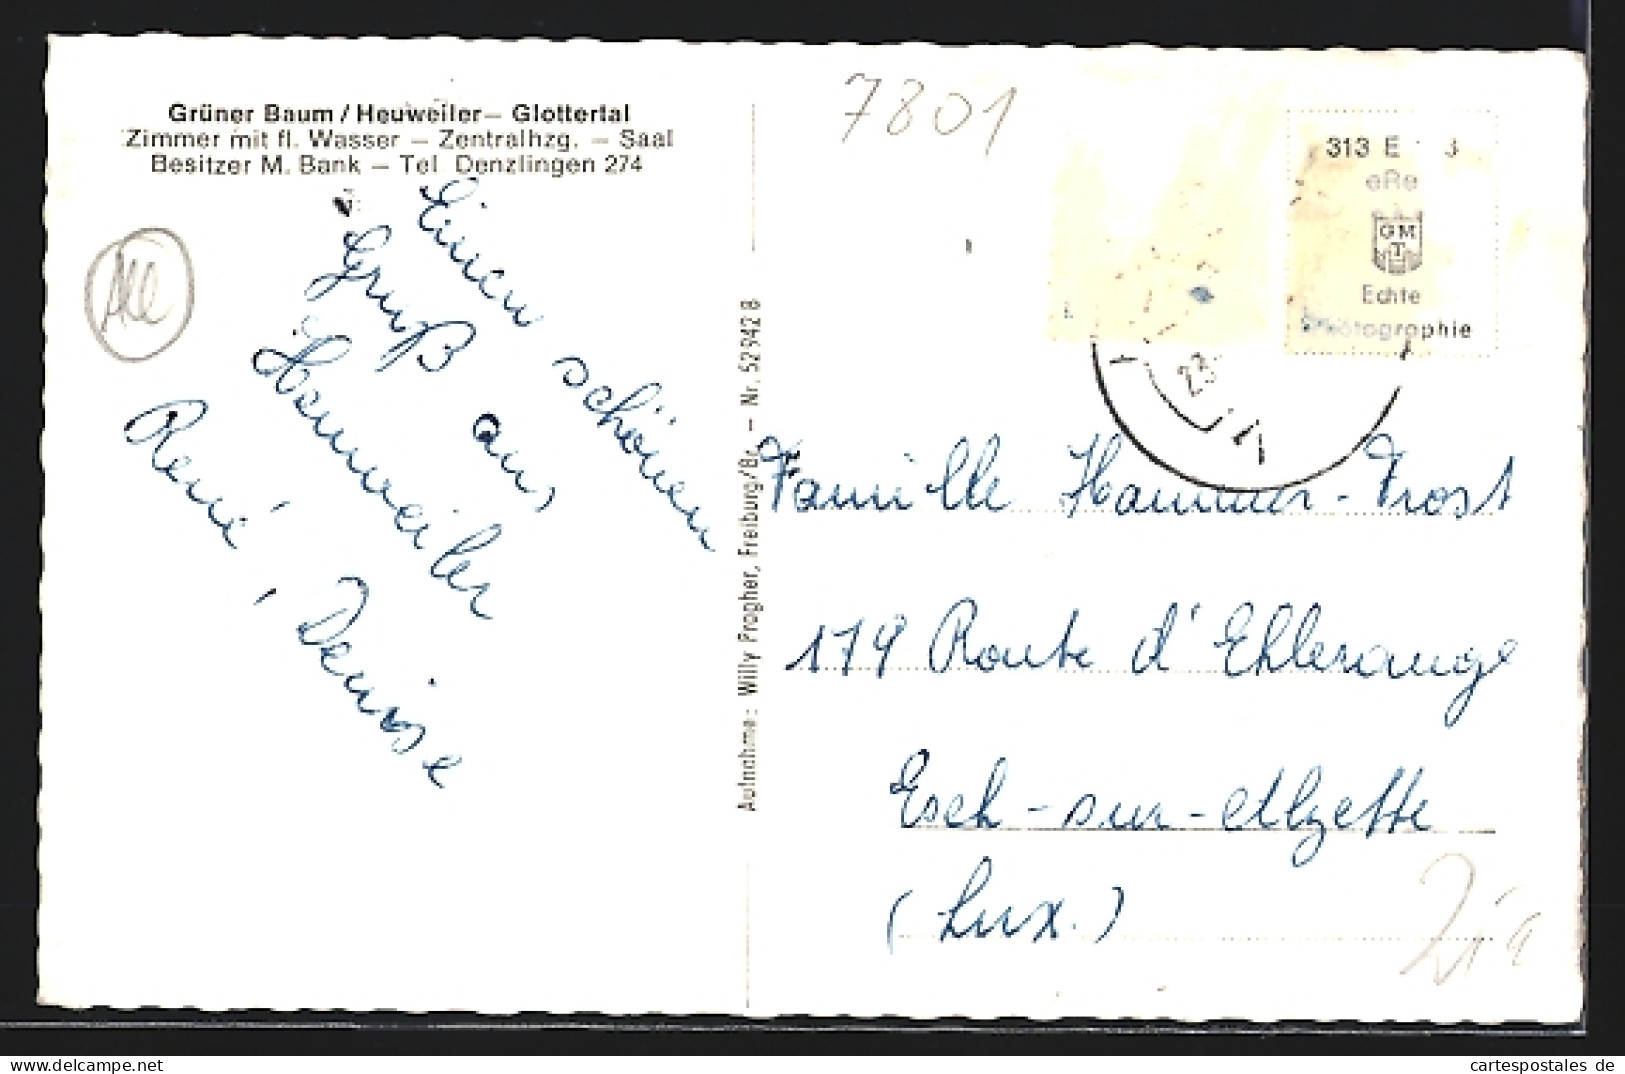 Grüner Baum / Heuweiler – Glottertal
Zimmer mit fl. Wasser – Zentralhzg. – Saal
Besitzer M. Bank – Tel. Denzlingen 274
Einen schönen
Gruß aus
Heuweiler
René, Denise
Aufnahme: Willy Pragher, Freiburg/Br. – Nr. 52942 B
7801
313 E 3
eRe
GMT
Echte
Photographie
23.
Famille Hammer-Frost
179 Route d'Ehlerange
Esch-sur-Alzette
(Lux.)
cartespostales de